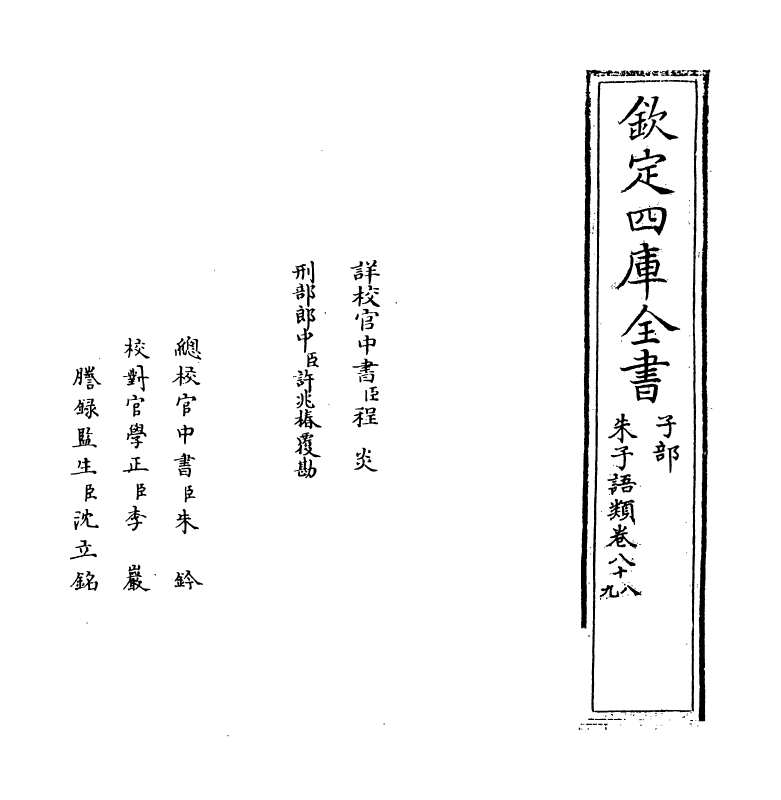 欽定四庫全書
子部
朱子語類卷八十八九
詳校官中書臣程炎
刑部郎中臣許兆椿覆勘
總校官中書臣朱鈐
校對官學正臣李巖
謄錄監生臣沈立銘